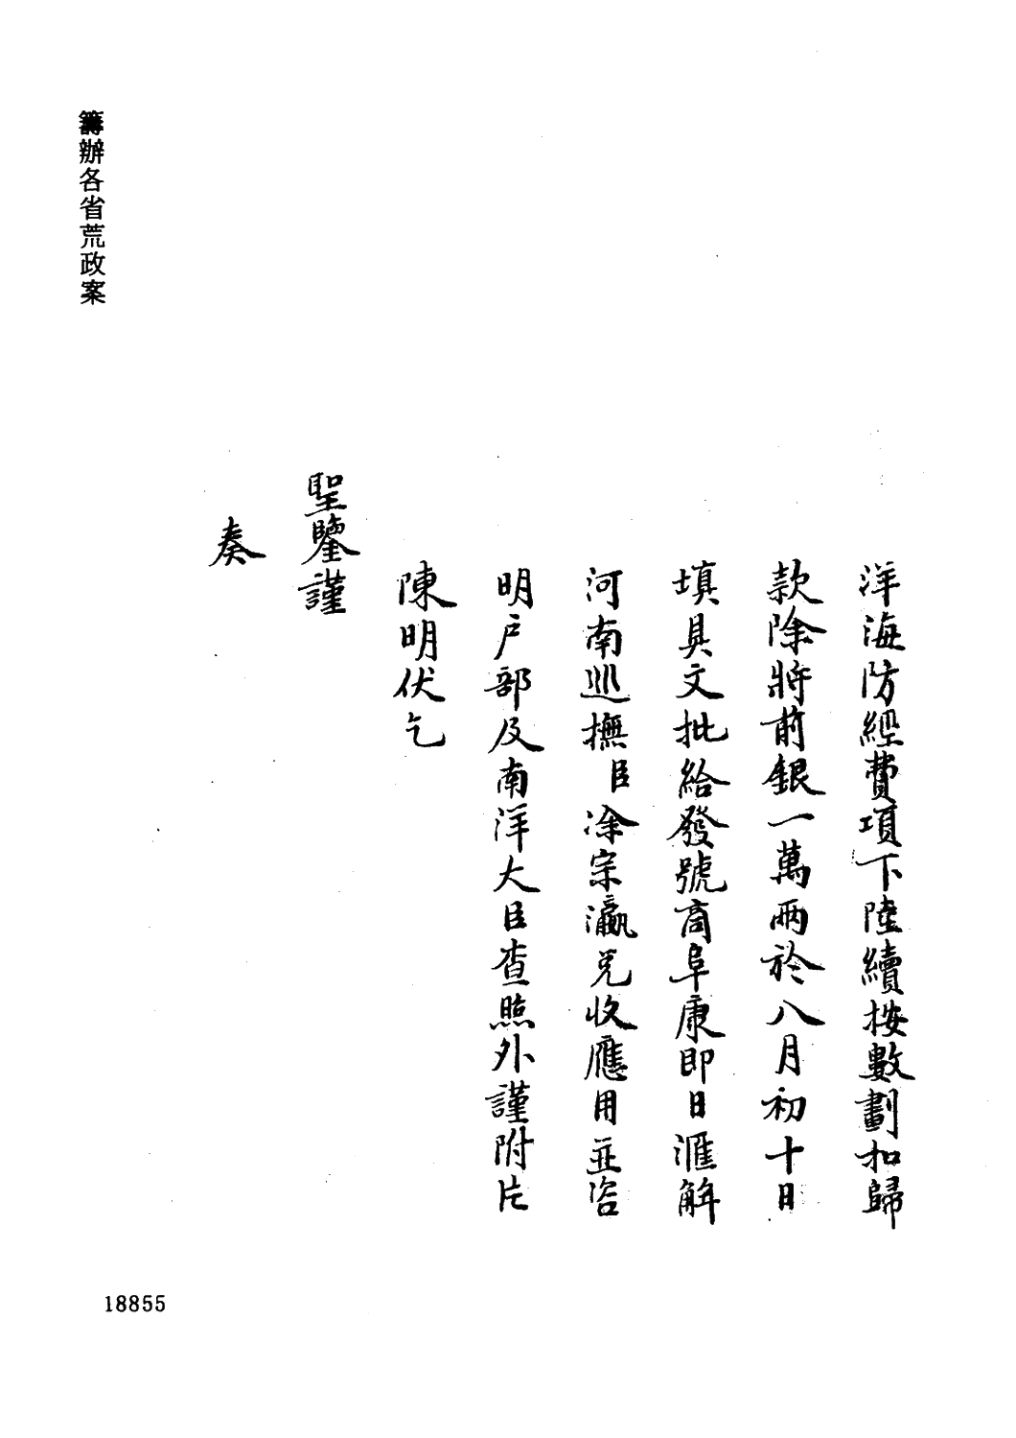 洋海防經費項下陸續按數劃扣歸
款除將前銀一萬兩於八月初十日
填具文批給發號商阜康即日滙解
河南巡撫臣涂宗瀛兌收應用並咨
明戶部及南洋大臣查照外謹附片
陳明伏乞
聖鑒謹
奏
籌辦各省荒政案
18855